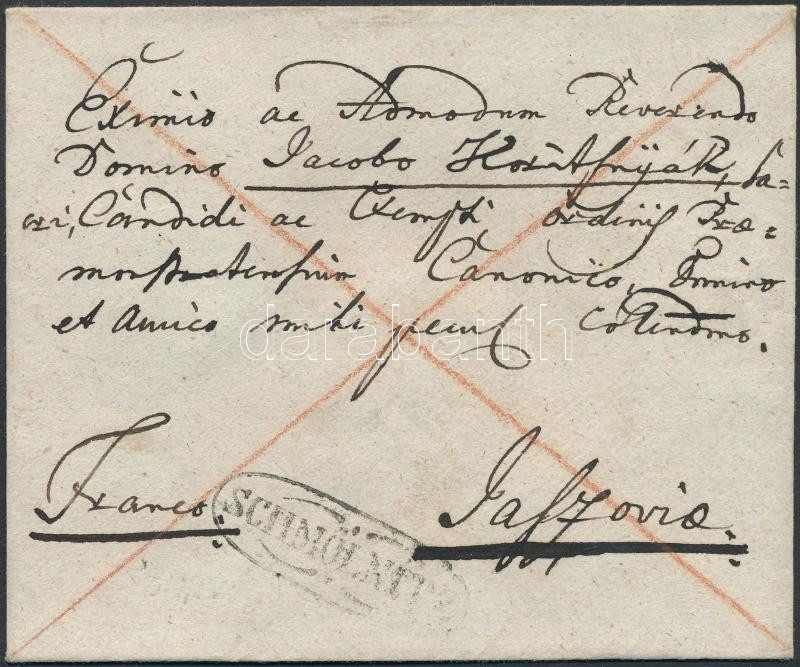 Eximio ac Admodum Reverendo
Domino Jacobo Kozsitsnyák, Sa=
cri, Candidi ac Exempti Ordinis Præ=
monstratensium Canonico, Domino
et Amico mihi pecul Colendmo.
Franco:
SCHMÖLNITZ
Jaszoviæ.
darabanth